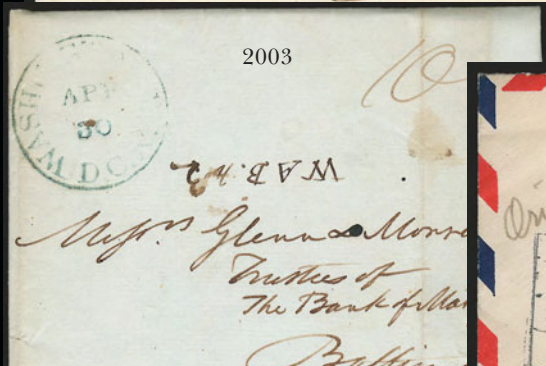 2003
10
WASHI
APR
30
D.C.
W A B
Messrs Glenn & Monr
Trustees of
The Bank of Mar
Balti
Ori